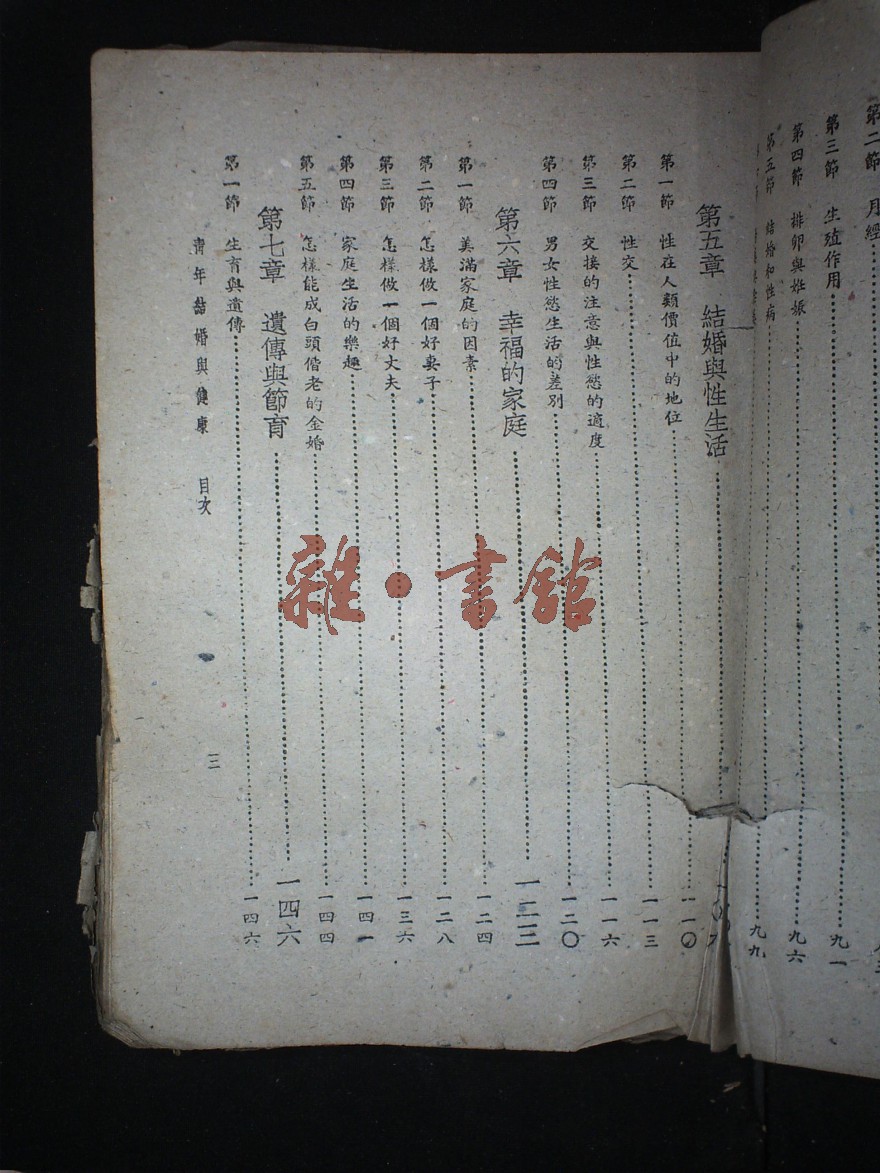 第二節 月經
第三節 生殖作用 九一
第四節 排卵與妊娠 九六
第五節 結婚和性病 九九
第五章 結婚與性生活
第一節 性在人類價值中的地位 一一〇
第二節 性交 一一三
第三節 交接的注意與性慾的適度 一一六
第四節 男女性慾生活的差別 一二〇
第六章 幸福的家庭
第一節 美滿家庭的因素 一二四
第二節 怎樣做一個好妻子 一二八
第三節 怎樣做一個好丈夫 一三六
第四節 家庭生活的樂趣 一四一
第五節 怎樣能成白頭偕老的金婚 一四四
第七章 遺傳與節育 一四六
第一節 生育與遺傳 一四六
青年結婚與健康 目次 三
雜·書館